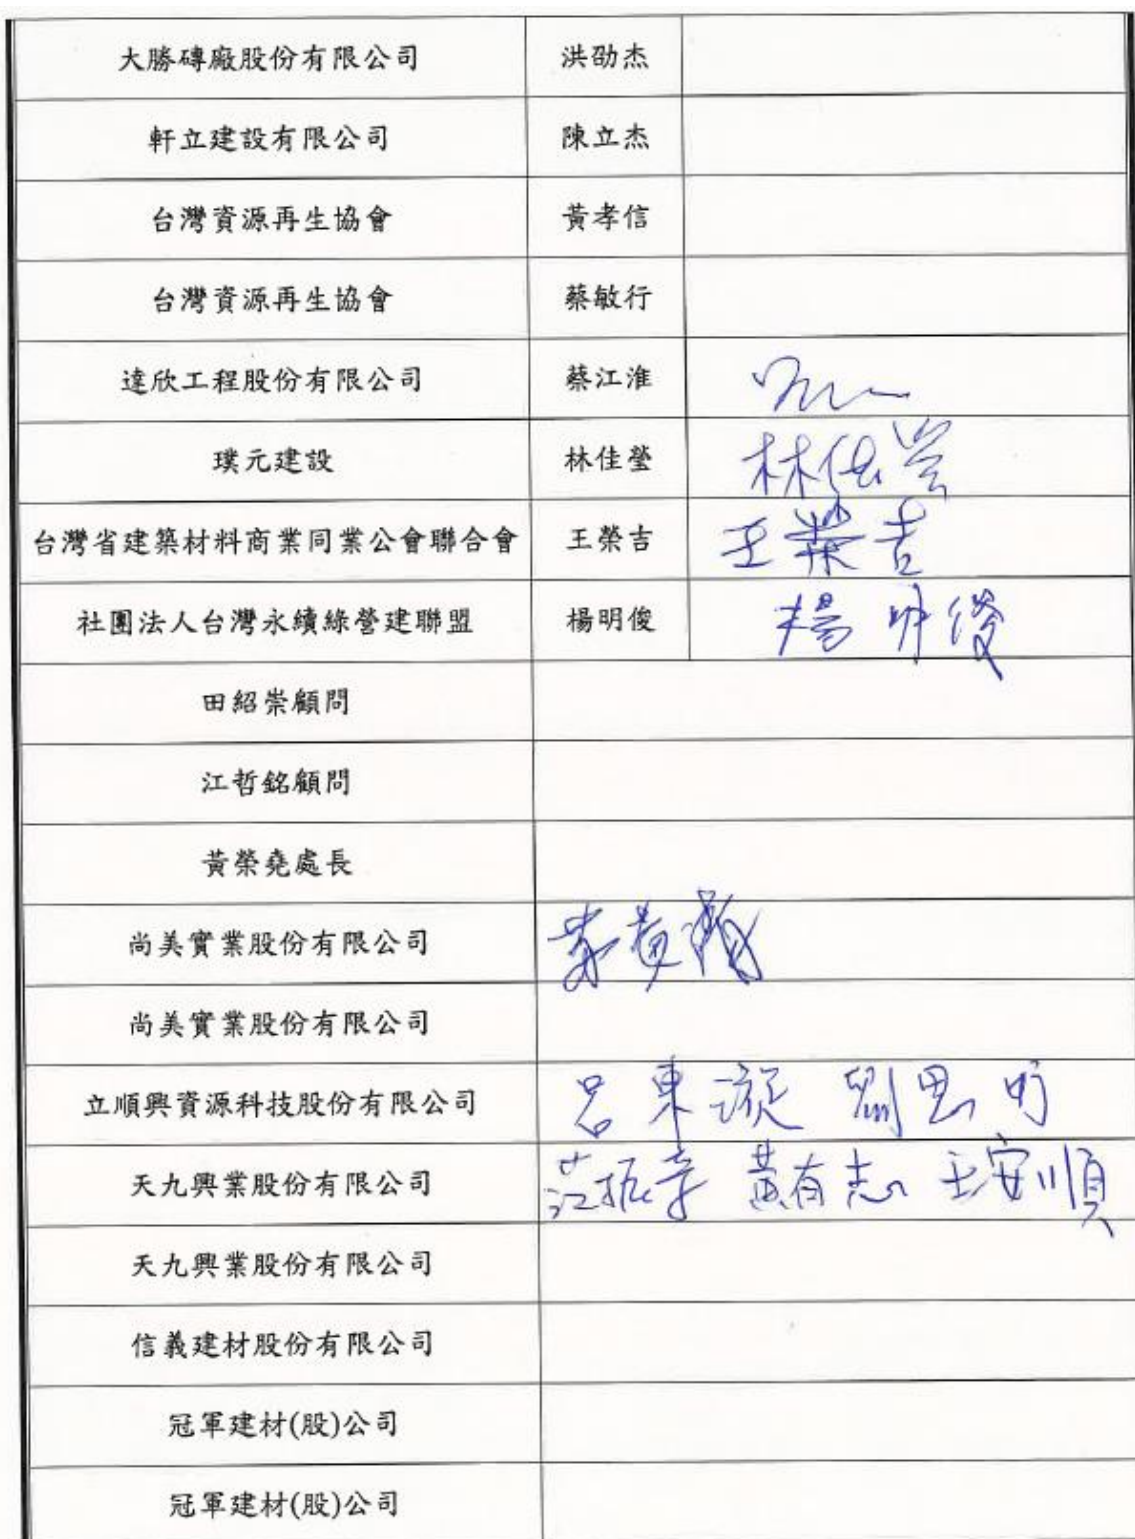 大勝磚廠股份有限公司 洪劭杰
軒立建設有限公司 陳立杰
台灣資源再生協會 黃孝信
台灣資源再生協會 蔡敏行
達欣工程股份有限公司 蔡江淮
璞元建設 林佳瑩 林佳瑩
台灣省建築材料商業同業公會聯合會 王榮吉 王榮吉
社團法人台灣永續綠營建聯盟 楊明俊 楊明俊
田紹崇顧問
江哲銘顧問
黃榮堯處長
尚美實業股份有限公司
尚美實業股份有限公司
立順興資源科技股份有限公司 呂東漩 劉思妤
天九興業股份有限公司 黃有志 王安順
天九興業股份有限公司
信義建材股份有限公司
冠軍建材(股)公司
冠軍建材(股)公司